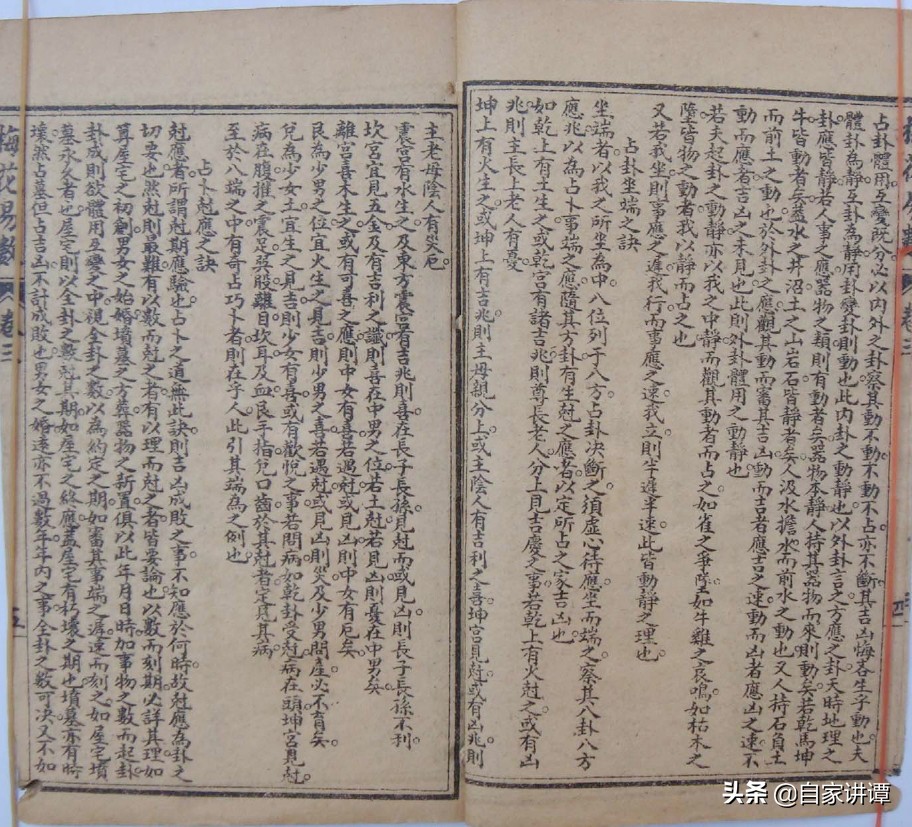 占卦體用互變既分必以內外之卦察其動不動不動不占亦不斷其吉凶悔吝生乎動也夫
體卦為靜互卦為靜用卦變卦則動也此內卦之動靜也以外卦言之方應之卦天時地理之
卦應皆靜若人事之應器物之類則有動者矣器物本靜人持其器物而來則動矣若乾馬坤
牛皆動者矣蓋水之井沼土之山岩石皆靜者矣人汲水擔水而前水之動也又人持石負土
而前土之動也於外卦之應觀其動而審其吉凶動而吉者應吉之速動而凶者應凶之速不
動而應者吉凶之未見也此則外卦體用之動靜也
若夫起卦之動靜亦以我之中靜而觀其動者而占之如雀之爭墜如牛雞之哀鳴如枯木之
墜皆物之動者我以靜而占之也
又若我坐則事應之遲我行而事應之速我立則半遲半速此皆動靜之理也
占卦坐端之訣
坐端者以我之所坐為中八位列于八方占卦決斷之須虛心待應坐而端之察其八卦八方
應兆以為占卜事端之應隨其方卦有生尅之應者以定所占之家吉凶也
如乾上有土生之或乾宮有諸吉兆則尊長老人分上見吉慶之事若乾上有火尅之或有凶
兆則主長上老人有憂
坤上有火生之或坤上有吉兆則主母親分上或主陰人有吉利之喜坤宮見尅或有凶兆則
主老母陰人有災厄
震宮有水生之及東方震宮有吉兆則喜在長子長孫見尅而或見凶則長子長孫不利
坎宮宜見五金及有吉利之讖則喜在中男之位若土尅若見凶則憂在中男矣
離宮喜木生之或有可喜之應則中女有喜若遇尅或見凶則中女有厄矣
艮為少男之位宜火生之見吉則少男之喜若遇尅或見凶則災及少男問產必不育矣
兌為少女土宜生之見吉則少女有喜或有歡悅之事若問病如乾卦受尅病在頭坤宮見尅
病在腹推之震足巽股離目坎耳及血艮手指兌口齒於其尅者定見其病
至於八端之中有奇占巧卜者則在乎人此引其端為之例也
占卜尅應之訣
尅應者所謂尅期應驗也占卜之道無此訣則吉凶成敗之事不知應於何時故尅應為卦之
切要也然尅則最難有以數而尅之者有以理而尅之者皆要論也以數而刻期必詳其理如
算屋宅之初創男女之始婚墳墓之方葬器物之新置俱以此年月日時加事物之數而起卦
卦成則欲體用互變之中視全卦之數以為約定之期如審其事端之遲速而刻之如屋宅墳
墓永久者也屋宅則以全卦之數尅其期如屋宅之終應蓋屋宅有朽壞之期也墳墓亦有時
壞然占墓但占吉凶不計成敗也男女之婚遠亦不過數年年內之事全卦之數可決又不如
梅花易數
卷三
五
卷三
四
头条 @自家讲谭